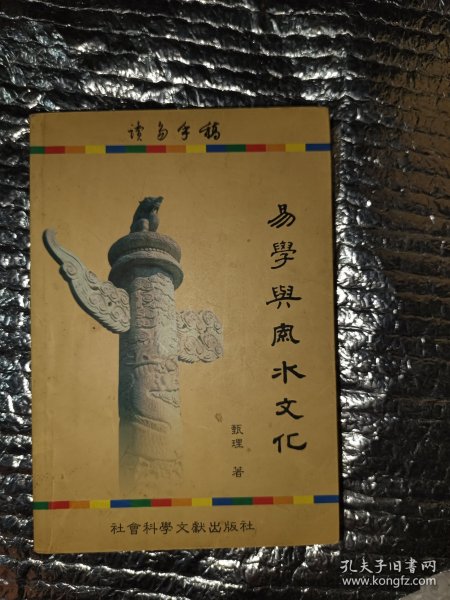 读易手稿
易學與風水文化
甄理 著
社會科學文獻出版社
孔夫子旧书网
www.kongfz.com